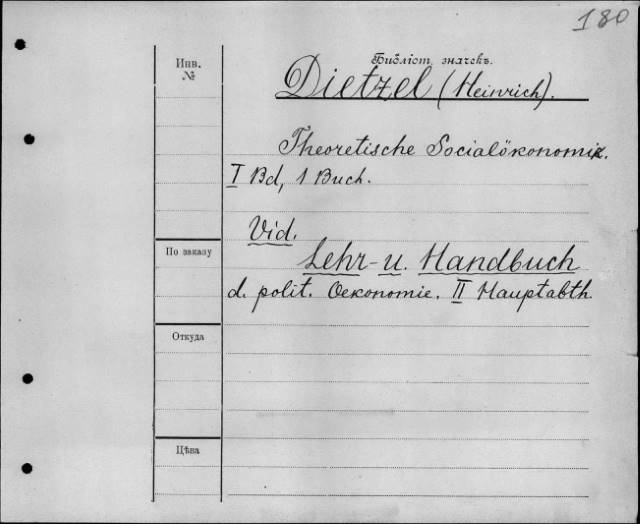 180
Библіот. значекъ.
Инв.
№
Dietzel (Heinrich).
Theoretische Socialökonomik.
I Bd, 1 Buch.
Vid.
По заказу
Lehr- u. Handbuch
d. polit. Oekonomie. II Hauptabth.
Откуда
Цѣна